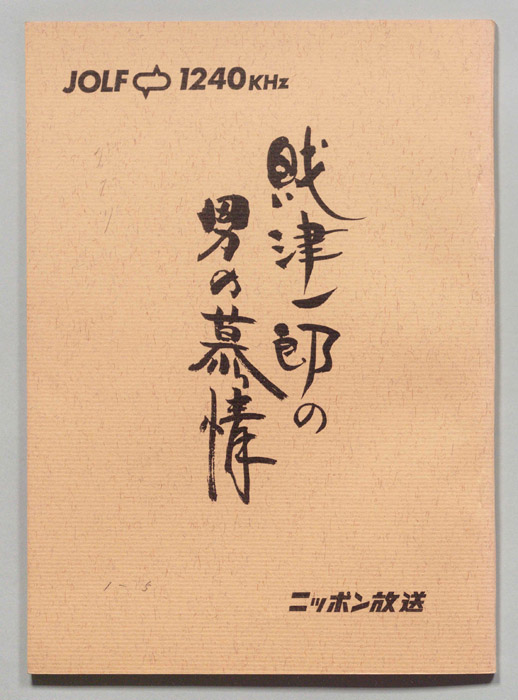 JOLF 1240KHz
財津一郎の
男の慕情
1-5
ニッポン放送